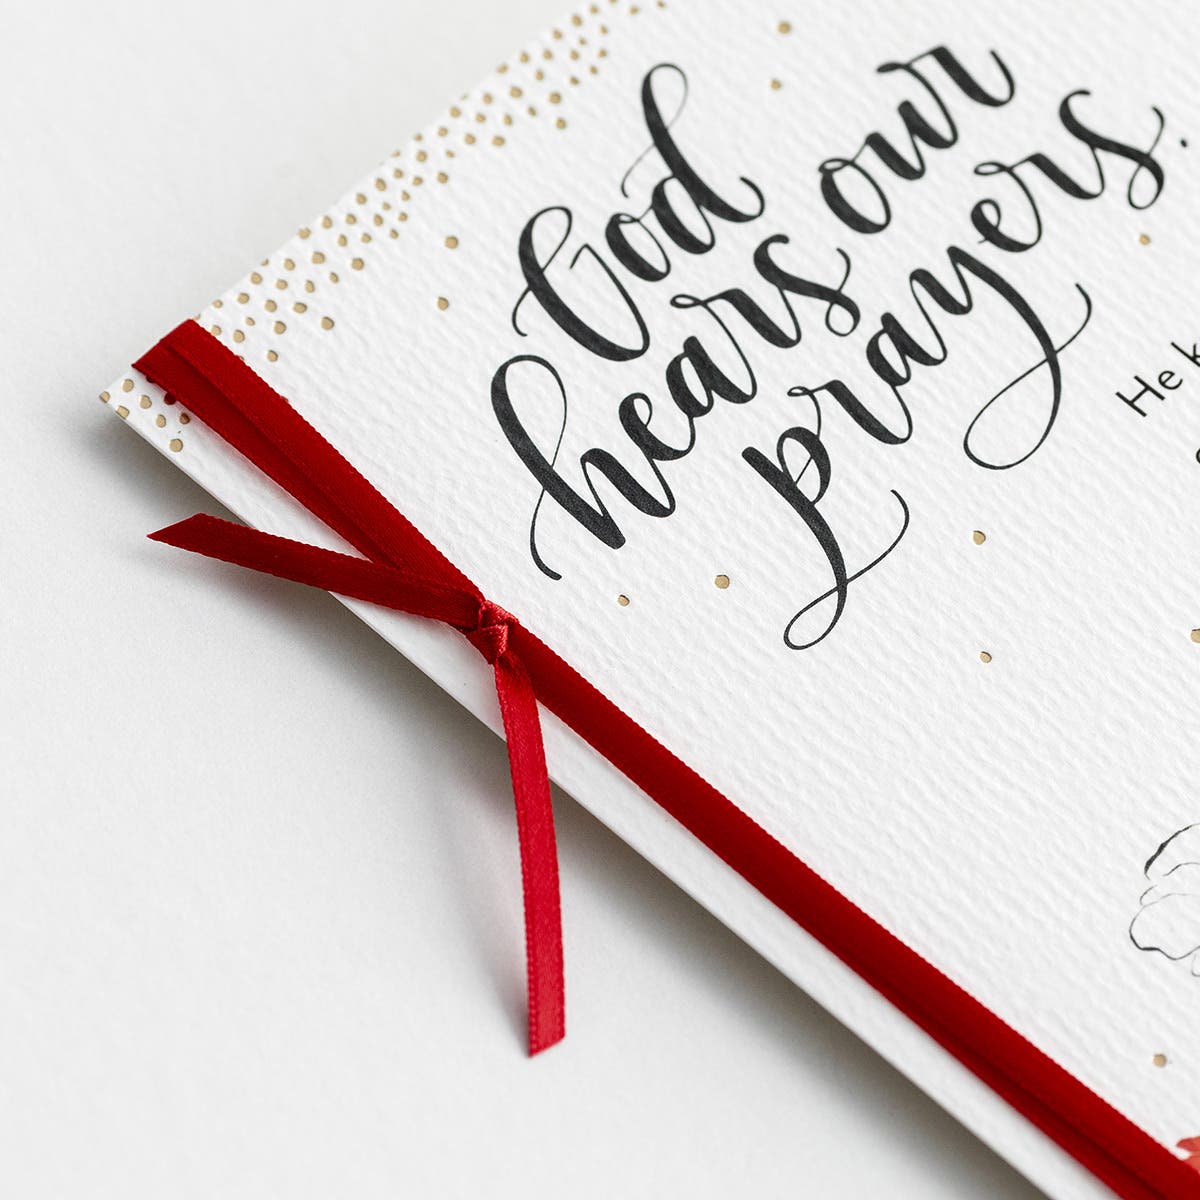 God
hears our
prayers.
He